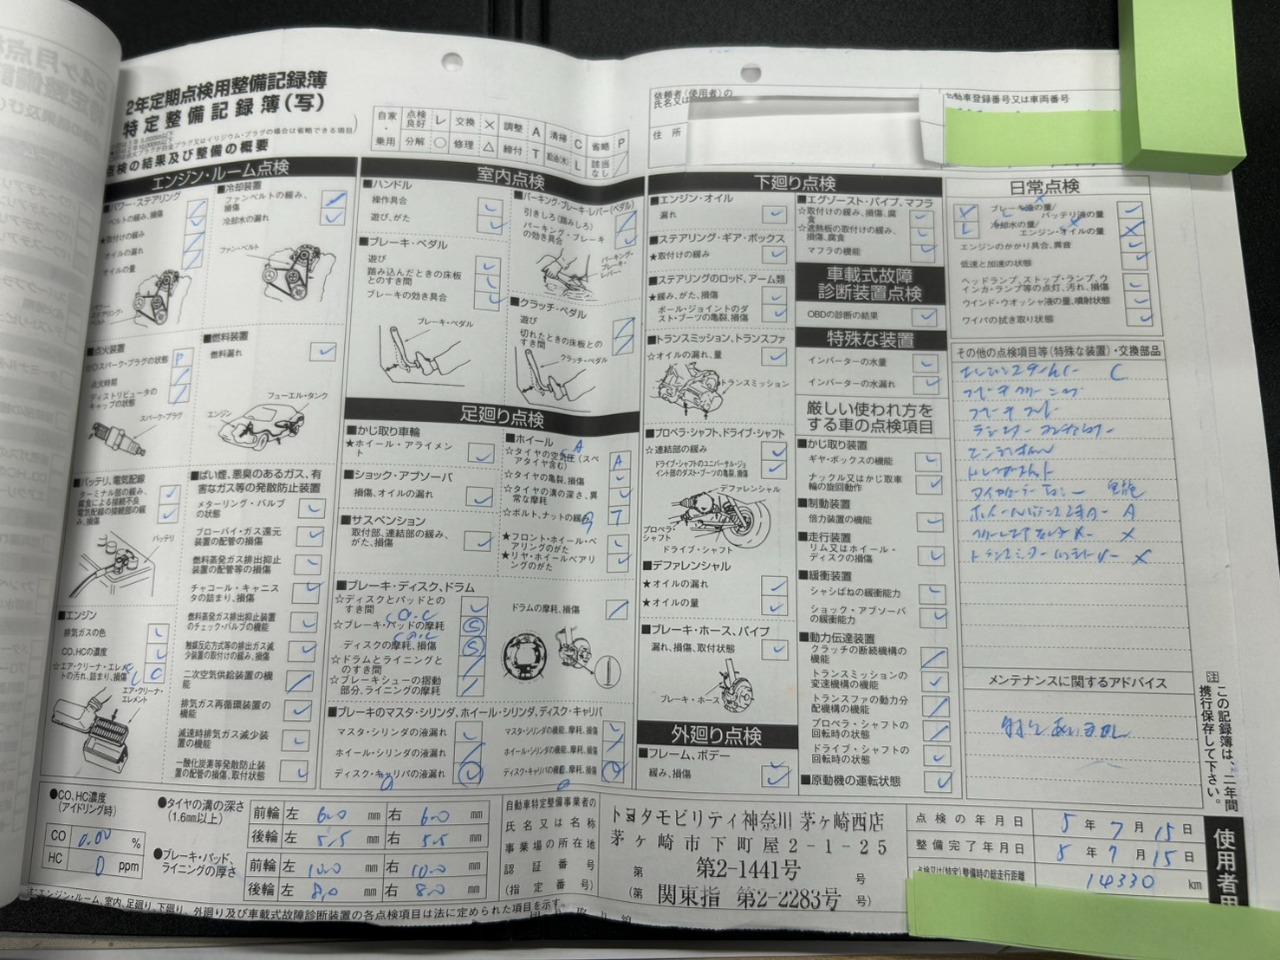 2年定期点検用整備記録簿
特定整備記録簿(写)
点検の結果及び整備の概要
自家・乗用
点検良好 レ 交換 × 調整 A 清掃 C 省略 P
分解 ○ 修理 △ 締付 T 給油(水) L 該当なし /
依頼者(使用者)の氏名又は
住所
自動車登録番号又は車両番号
エンジン・ルーム点検
■パワー・ステアリング
ベルトの緩み、損傷
★取付けの緩み
オイルの漏れ
オイルの量
パワー・ステアリング・ベルト
■冷却装置
ファンベルトの緩み、損傷
冷却水の漏れ
ファン・ベルト
■点火装置
スパーク・プラグの状態 P
点火時期
ディストリビュータのキャップの状態
スパーク・プラグ
■燃料装置
燃料漏れ
フューエル・タンク
エンジン
■バッテリ、電気配線
ターミナル部の緩み、腐食による接続不良
電気配線の接続部の緩み、損傷
バッテリ
■エンジン
排気ガスの色
CO、HCの濃度
☆エア・クリーナ・エレメントの汚れ、詰まり、損傷
エア・クリーナ・エレメント
■ばい煙、悪臭のあるガス、有害なガス等の発散防止装置
メターリング・バルブの状態
ブローバイ・ガス還元装置の配管の損傷
燃料蒸発ガス排出抑止装置の配管等の損傷
チャコール・キャニスタの詰まり、損傷
燃料蒸発ガス排出抑止装置のチェック・バルブの機能
触媒反応方式等の排出ガス減少装置の取付けの緩み、損傷
二次空気供給装置の機能
排気ガス再循環装置の機能
減速時排気ガス減少装置の機能
一酸化炭素等発散防止装置の配管の損傷、取付状態
室内点検
■ハンドル
操作具合
遊び、がた
■ブレーキ・ペダル
遊び
踏み込んだときの床板とのすき間
ブレーキの効き具合
ブレーキ・ペダル
■パーキング・ブレーキ・レバー(ペダル)
引きしろ(踏みしろ)
パーキング・ブレーキの効き具合
パーキング・ブレーキ・レバー
■クラッチ・ペダル
遊び
切れたときの床板とのすき間
クラッチ・ペダル
足廻り点検
■かじ取り車輪
★ホイール・アライメント
■ショック・アブソーバ
損傷、オイルの漏れ
■サスペンション
取付部、連結部の緩み、がた、損傷
■ホイール
☆タイヤの空気圧(スペアタイヤ含む) A
☆タイヤの亀裂、損傷
☆タイヤの溝の深さ、異常な摩耗
☆ボルト、ナットの緩み T
★フロント・ホイール・ベアリングのがた
★リヤ・ホイールベアリングのがた
■ブレーキ・ディスク、ドラム
☆ディスクとパッドとのすき間
☆ブレーキ・パッドの摩耗
ディスクの摩耗、損傷
☆ドラムとライニングとのすき間
☆ブレーキシューの摺動部分、ライニングの摩耗
ドラムの摩耗、損傷
■ブレーキのマスタ・シリンダ、ホイール・シリンダ、ディスク・キャリパ
マスタ・シリンダの液漏れ
ホイール・シリンダの液漏れ
ディスク・キャリパの液漏れ
マスタ・シリンダの機能、摩耗、損傷
ホイール・シリンダの機能、摩耗、損傷
ディスク・キャリパの機能、摩耗、損傷
下廻り点検
■エンジン・オイル
漏れ
■ステアリング・ギア・ボックス
★取付けの緩み
■ステアリングのロッド、アーム類
★緩み、がた、損傷
ボール・ジョイントのダスト・ブーツの亀裂、損傷
■トランスミッション、トランスファ
☆オイルの漏れ、量
トランスミッション
■プロペラ・シャフト、ドライブ・シャフト
☆連結部の緩み
ドライブ・シャフトのユニバーサル・ジョイント部のダスト・ブーツの亀裂、損傷
デファレンシャル
プロペラ・シャフト
ドライブ・シャフト
■デファレンシャル
★オイルの漏れ
★オイルの量
■ブレーキ・ホース、パイプ
漏れ、損傷、取付状態
ブレーキ・ホース
外廻り点検
■フレーム、ボデー
緩み、損傷
■エグゾースト・パイプ、マフラ
☆取付けの緩み、損傷、腐食
☆遮熱板の取付けの緩み、損傷、腐食
マフラの機能
車載式故障診断装置点検
OBDの診断の結果
特殊な装置
インバーターの水量
インバーターの水漏れ
厳しい使われ方をする車の点検項目
■かじ取り装置
ギヤ・ボックスの機能
ナックル又はかじ取車輪の旋回動作
■制動装置
倍力装置の機能
■走行装置
リム又はホイール・ディスクの損傷
■緩衝装置
シャシばねの緩衝能力
ショック・アブソーバの緩衝能力
■動力伝達装置
クラッチの断続機構の機能
トランスミッションの変速機構の機能
トランスファの動力分配機構の機能
プロペラ・シャフトの回転時の状態
ドライブ・シャフトの回転時の状態
■原動機の運転状態
日常点検
ブレーキ液の量/バッテリ液の量
冷却水の量/エンジン・オイルの量
エンジンのかかり具合、異音
低速と加速の状態
ヘッドランプ、ストップ・ランプ、ウインカ・ランプ等の点灯、汚れ、損傷
ウインド・ウオッシャ液の量、噴射状態
ワイパの拭き取り状態
その他の点検項目等(特殊な装置)・交換部品
メンテナンスに関するアドバイス
注 この記録簿は、二年間携行保存して下さい。
使用者用
●CO、HC濃度(アイドリング時)
CO 0.00 %
HC 0 ppm
●タイヤの溝の深さ(1.6mm以上)
前輪 左 6.0 mm 右 6.0 mm
後輪 左 5.5 mm 右 5.5 mm
●ブレーキ・パッド、ライニングの厚さ
前輪 左 10.0 mm 右 10.0 mm
後輪 左 8.0 mm 右 8.0 mm
自動車特定整備事業者の氏名又は名称
事業場の所在地
認証番号
(指定番号)
トヨタモビリティ神奈川 茅ヶ崎西店
茅ヶ崎市下町屋2-1-25
第 第2-1441号 号
(第 関東指 第2-2283号 号)
点検の年月日 5年7月15日
整備完了年月日 5年7月15日
点検又は(特定)整備時の総走行距離 14330 km
エンジン・ルーム、室内、足廻り、下廻り、外廻り及び車載式故障診断装置の各点検項目は法に定められた項目を示す。